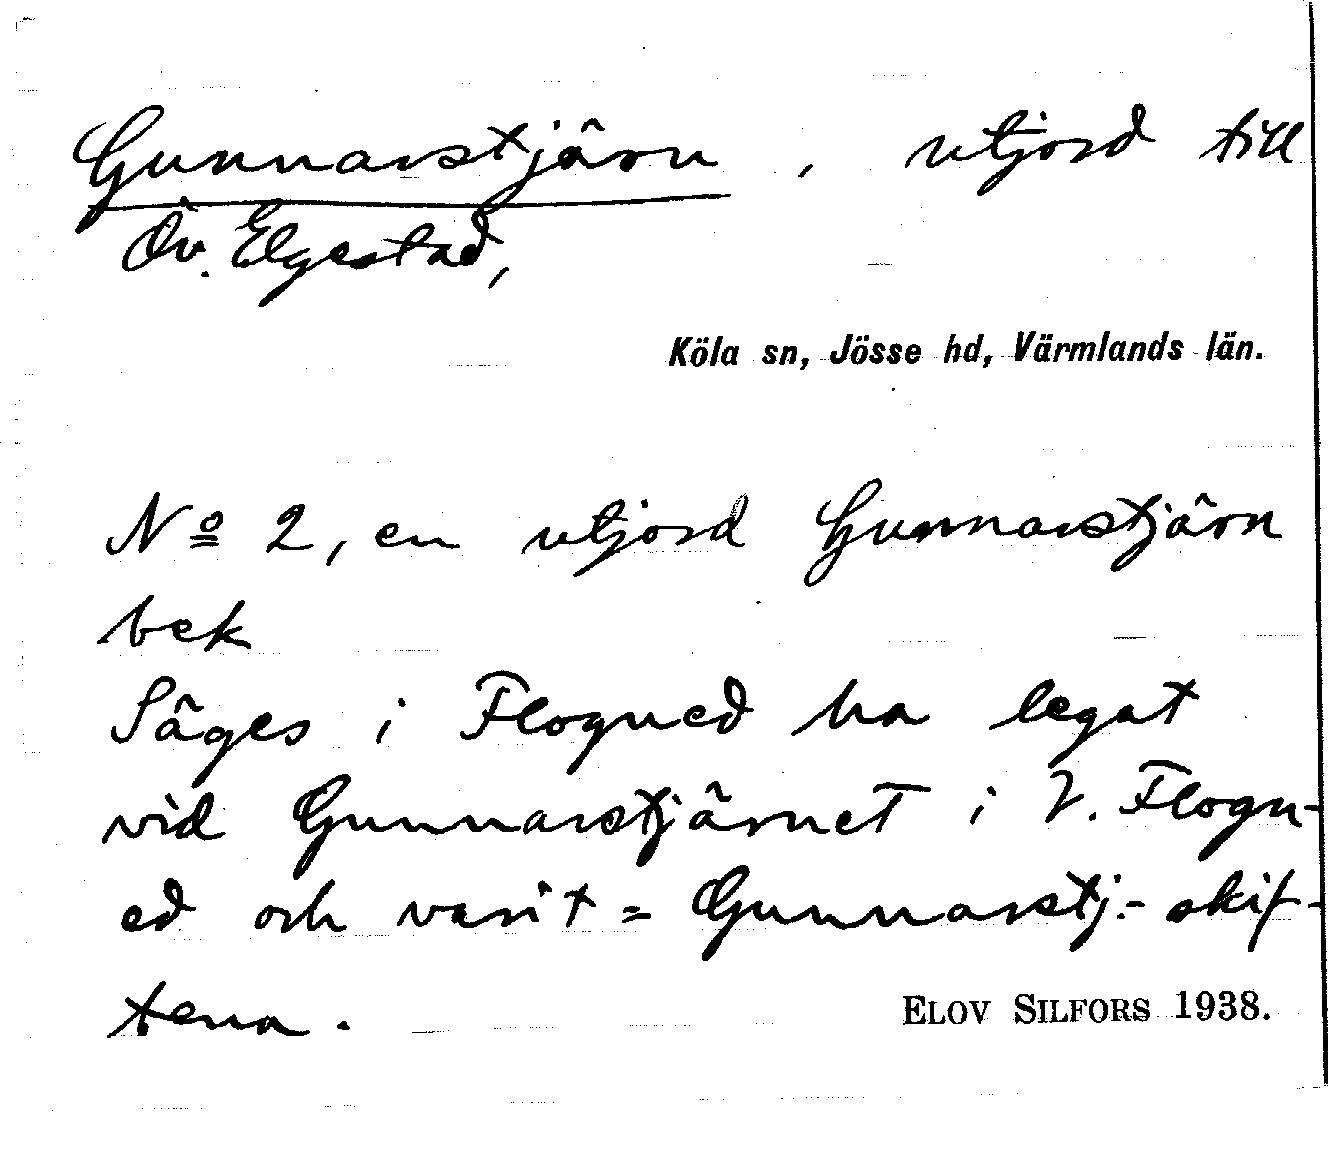 Gunnarstjärn, utjord till
Öv. Elgestad,
Köla sn, Jösse hd, Värmlands län.
Nº 2, en utjord Gunnarstjärn
bek
Säges i Flogned ha legat
vid Gunnarstjärnet i V. Flogn-
ed och varit = Gunnarstj.-skif-
tena.
ELOV SILFORS 1938.